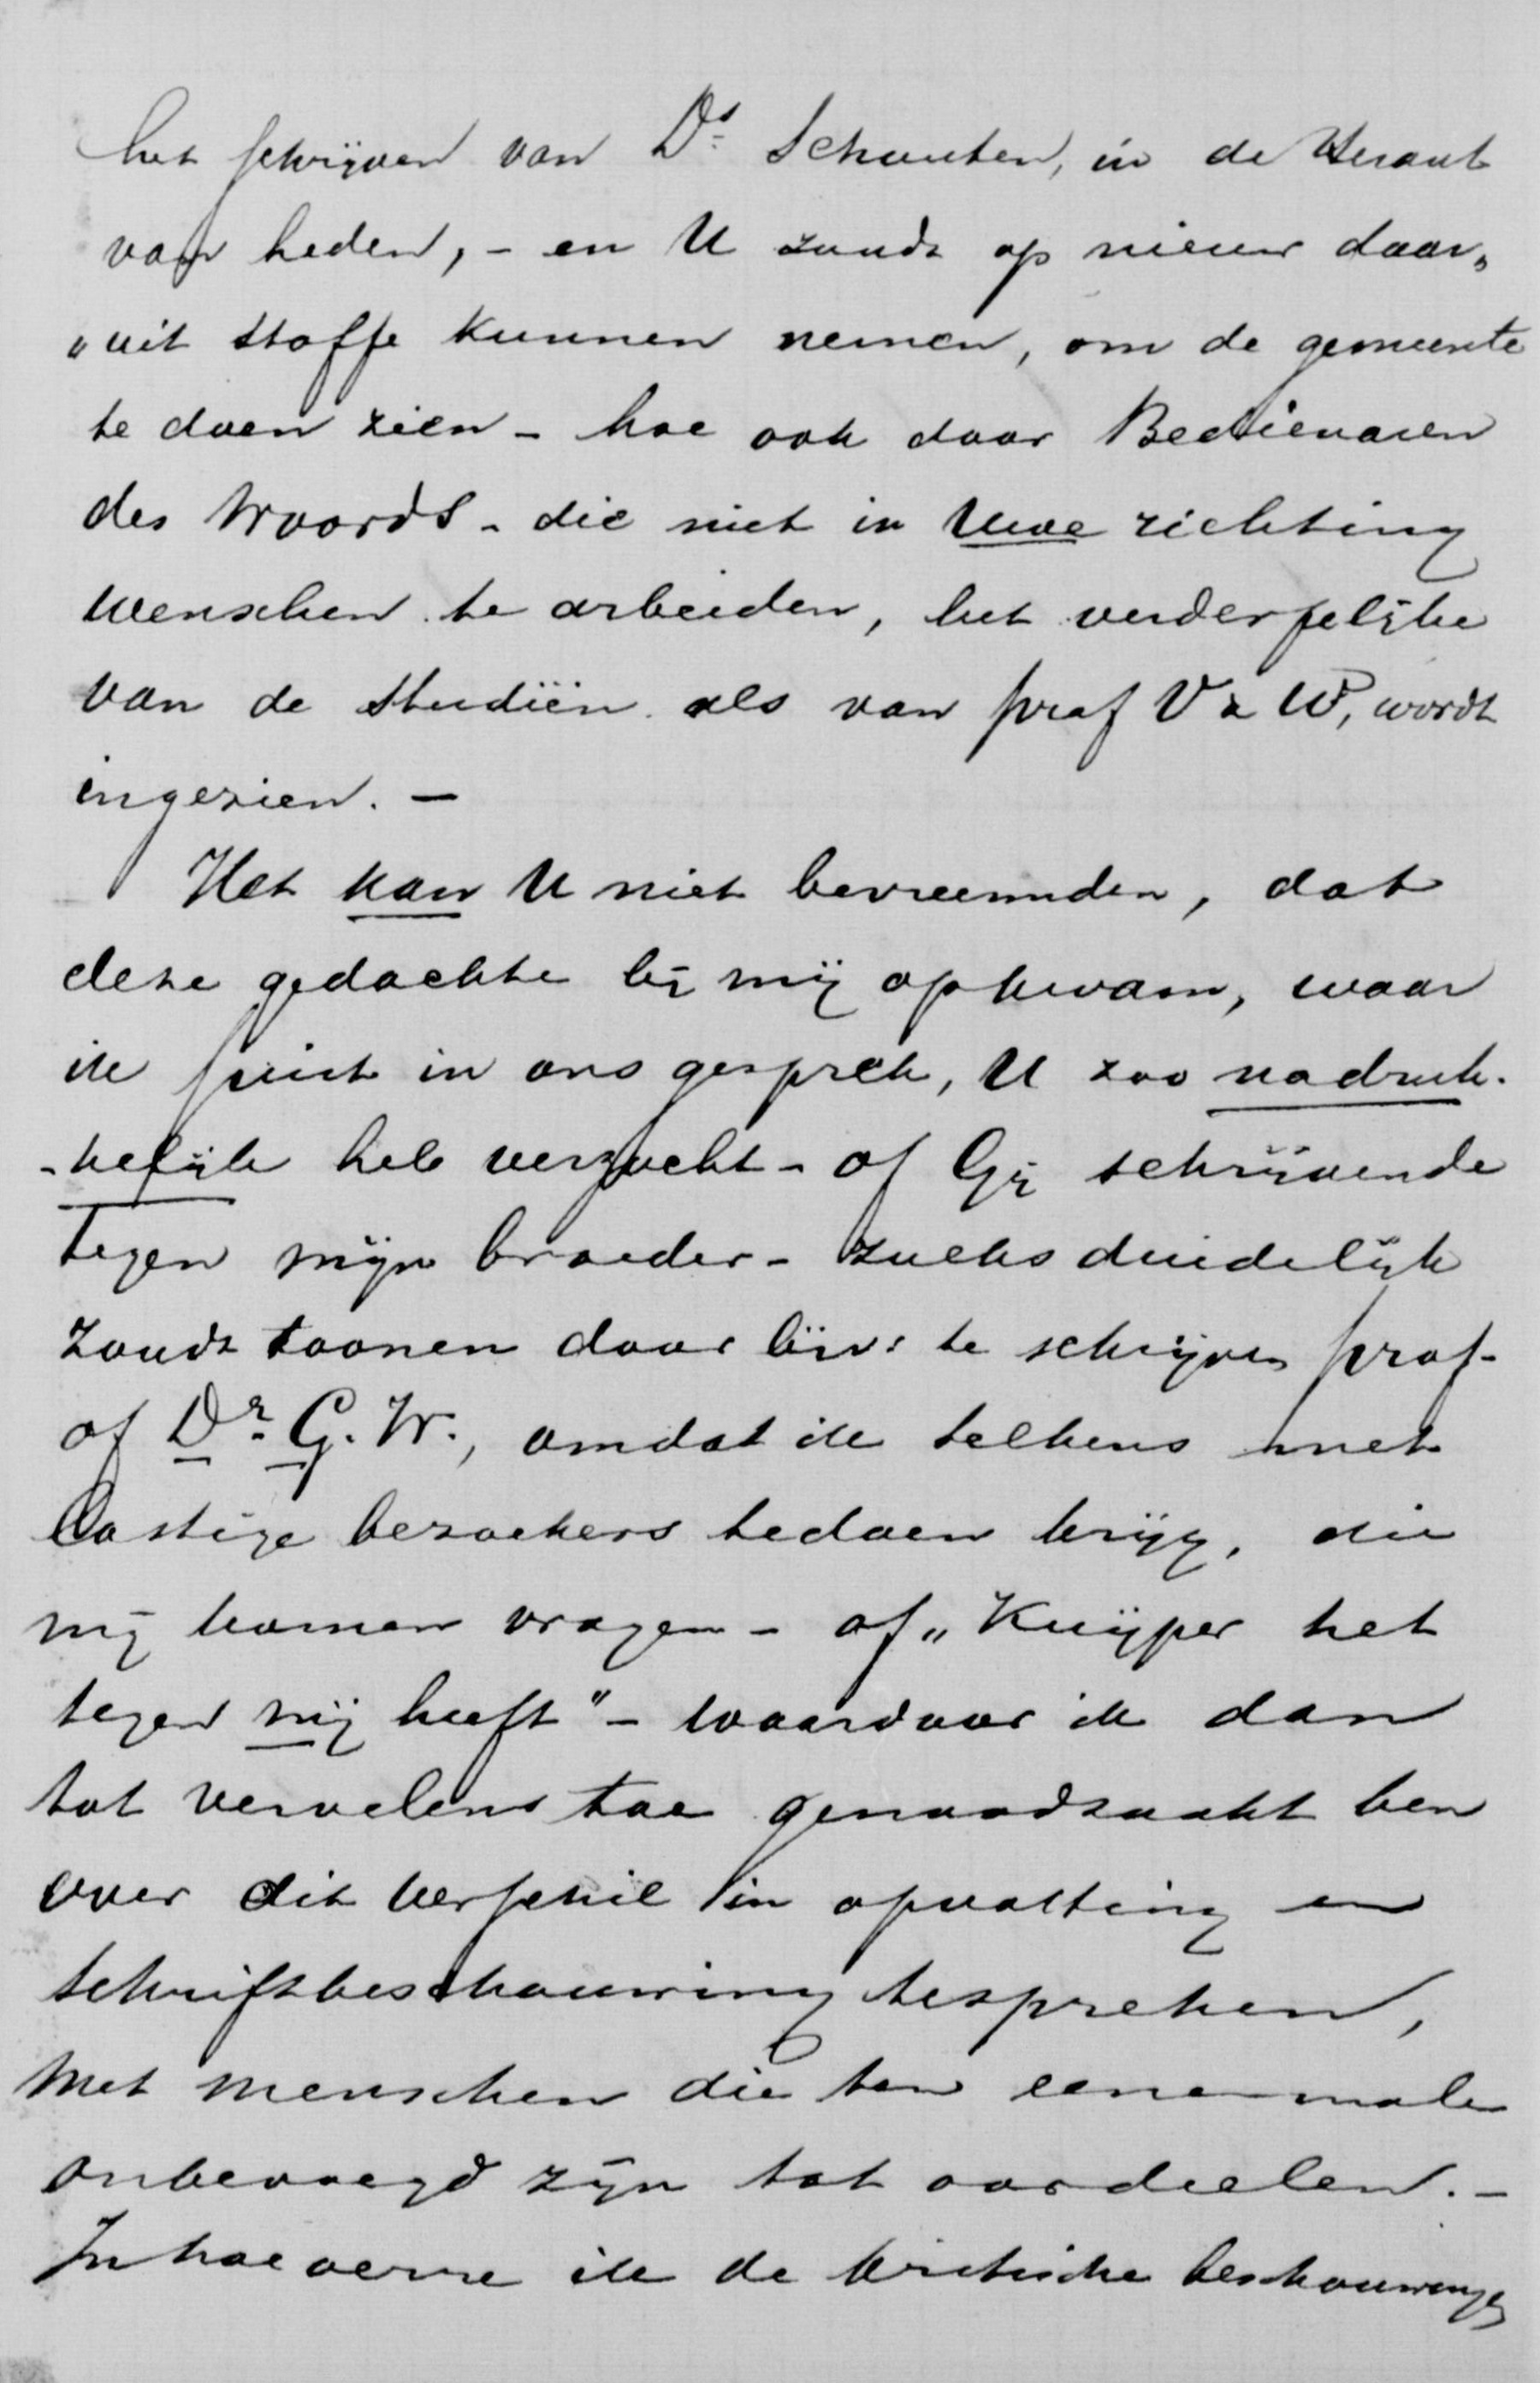 het schrijven van Ds Schouten, in de Heraut
van heden, - en U zoudt op nieuw daar„
„uit stoffe kunnen nemen, om de gemeente
te doen zien - hoe ook door Bedienaren
des Woords - die niet in Uwe richting
wenschen te arbeiden, het verderfelijke
van de studiën als van prof V & W, wordt
ingezien. -
Het kan U niet bevreemden, dat
deze gedachte bij mij opkwam, waar
ik juist in ons gesprek, U zoo nadruk-
-kelijk heb verzocht - of Gij schrijvende
tegen mijn broeder - zulks duidelijk
zoudt toonen door bijv: te schrijven prof-
of Dr. G. W., omdat ik telkens met
lastige bezoekers tedoen krijg, die
mij komen vragen - of „Kuijper het
tegen mij heeft" - waardoor ik dan
tot vervelens toe genoodzaakt ben
over dit verschil in opvatting en
schriftbeschouwing tespreken,
met menschen die ten eenenmale
onbevoegd zijn tot oordeelen. -
In hoeverre ik de kritische beschouwingen